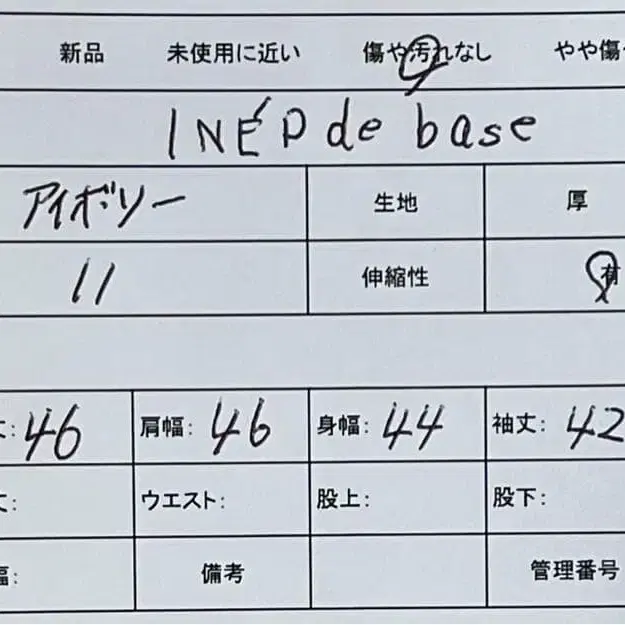 新品 未使用に近い 傷や汚れなし やや傷
INÉD de base
アイボリー 生地 厚
11 伸縮性 有
丈: 46 肩幅: 46 身幅: 44 袖丈: 42
丈: ウエスト: 股上: 股下:
幅: 備考 管理番号